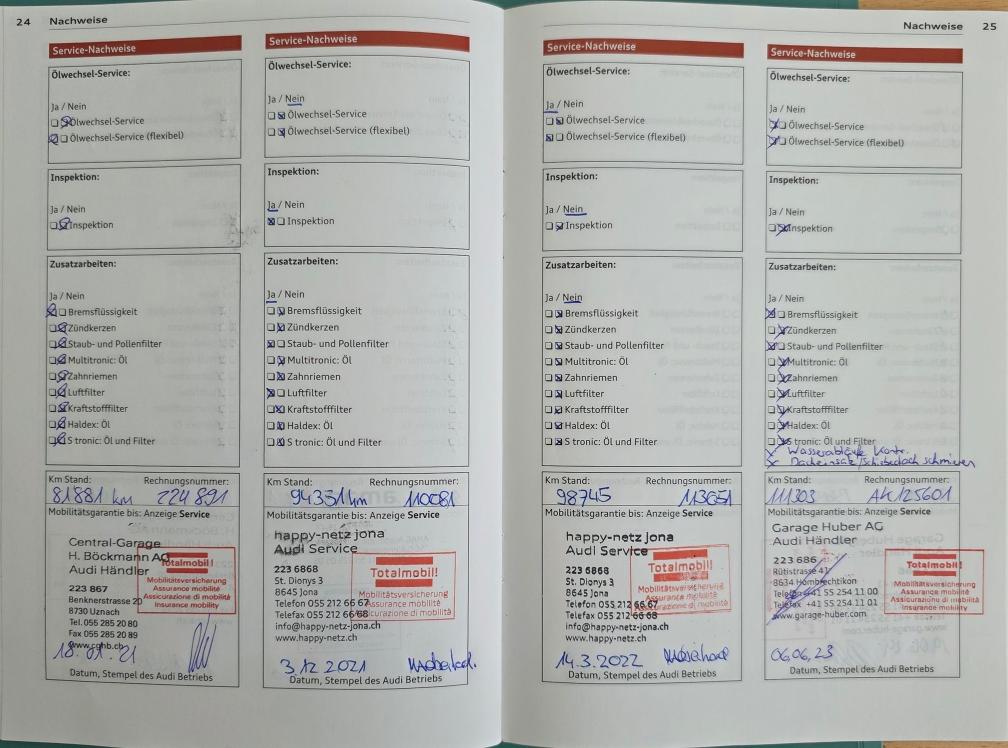 24 Nachweise
Service-Nachweise
Ölwechsel-Service:
Ja / Nein
Ölwechsel-Service
Ölwechsel-Service (flexibel)
Inspektion:
Ja / Nein
Inspektion
Zusatzarbeiten:
Ja / Nein
Bremsflüssigkeit
Zündkerzen
Staub- und Pollenfilter
Multitronic: Öl
Zahnriemen
Luftfilter
Kraftstofffilter
Haldex: Öl
S tronic: Öl und Filter
Km Stand: Rechnungsnummer:
81881 km 224891
Mobilitätsgarantie bis: Anzeige Service
Central-Garage
H. Böckmann AG
Audi Händler
223 867
Benknerstrasse 20
8730 Uznach
Tel. 055 285 20 80
Fax 055 285 20 89
www.cghb.ch
Totalmobil!
Mobilitätsversicherung
Assurance mobilité
Assicurazione di mobilità
Insurance mobility
18.01.21
Datum, Stempel des Audi Betriebs
Service-Nachweise
Ölwechsel-Service:
Ja / Nein
Ölwechsel-Service
Ölwechsel-Service (flexibel)
Inspektion:
Ja / Nein
Inspektion
Zusatzarbeiten:
Ja / Nein
Bremsflüssigkeit
Zündkerzen
Staub- und Pollenfilter
Multitronic: Öl
Zahnriemen
Luftfilter
Kraftstofffilter
Haldex: Öl
S tronic: Öl und Filter
Km Stand: Rechnungsnummer:
94351 km 110081
Mobilitätsgarantie bis: Anzeige Service
happy-netz jona
Audi Service
223 6868
St. Dionys 3
8645 Jona
Telefon 055 212 66 67
Telefax 055 212 66 68
info@happy-netz-jona.ch
www.happy-netz.ch
Totalmobil!
Mobilitätsversicherung
Assurance mobilité
Assicurazione di mobilità
3.12.2021
Datum, Stempel des Audi Betriebs
Nachweise 25
Service-Nachweise
Ölwechsel-Service:
Ja / Nein
Ölwechsel-Service
Ölwechsel-Service (flexibel)
Inspektion:
Ja / Nein
Inspektion
Zusatzarbeiten:
Ja / Nein
Bremsflüssigkeit
Zündkerzen
Staub- und Pollenfilter
Multitronic: Öl
Zahnriemen
Luftfilter
Kraftstofffilter
Haldex: Öl
S tronic: Öl und Filter
Km Stand: Rechnungsnummer:
98745 113651
Mobilitätsgarantie bis: Anzeige Service
happy-netz jona
Audi Service
223 6868
St. Dionys 3
8645 Jona
Telefon 055 212 66 67
Telefax 055 212 66 68
info@happy-netz-jona.ch
www.happy-netz.ch
Totalmobil!
Mobilitätsversicherung
Assurance mobilité
Assicurazione di mobilità
14.3.2022
Datum, Stempel des Audi Betriebs
Service-Nachweise
Ölwechsel-Service:
Ja / Nein
Ölwechsel-Service
Ölwechsel-Service (flexibel)
Inspektion:
Ja / Nein
Inspektion
Zusatzarbeiten:
Ja / Nein
Bremsflüssigkeit
Zündkerzen
Staub- und Pollenfilter
Multitronic: Öl
Zahnriemen
Luftfilter
Kraftstofffilter
Haldex: Öl
S tronic: Öl und Filter
Wasserabläufe Kontr.
schmieren
Km Stand: Rechnungsnummer:
111303 AK125601
Mobilitätsgarantie bis: Anzeige Service
Garage Huber AG
Audi Händler
223 686
Rütistrasse 41
8634 Hombrechtikon
Telefon +41 55 254 11 00
Telefax +41 55 254 11 01
www.garage-huber.com
Totalmobil!
Mobilitätsversicherung
Assurance mobilité
Assicurazione di mobilità
Insurance mobility
06.06.23
Datum, Stempel des Audi Betriebs